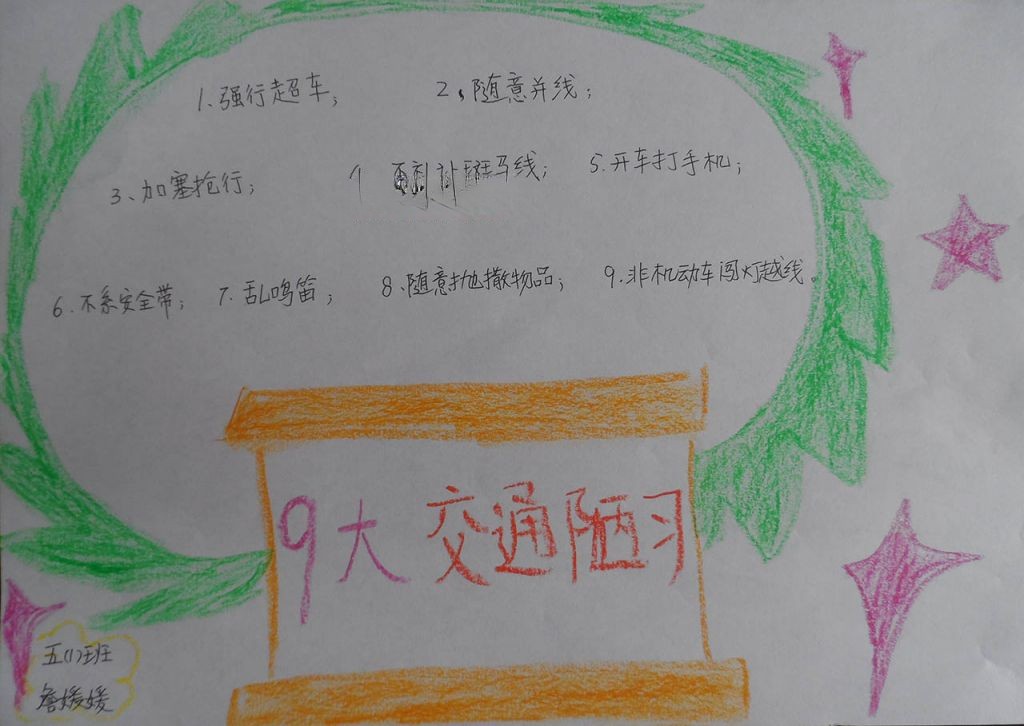 1、强行超车；
2、随意并线；
3、加塞抢行；
斑马线；
5.开车打手机；
6.不系安全带；
7.乱鸣笛；
8、随意抛撒物品；
9.非机动车闯灯越线。
9大交通陋习
五(1)班
詹媛媛